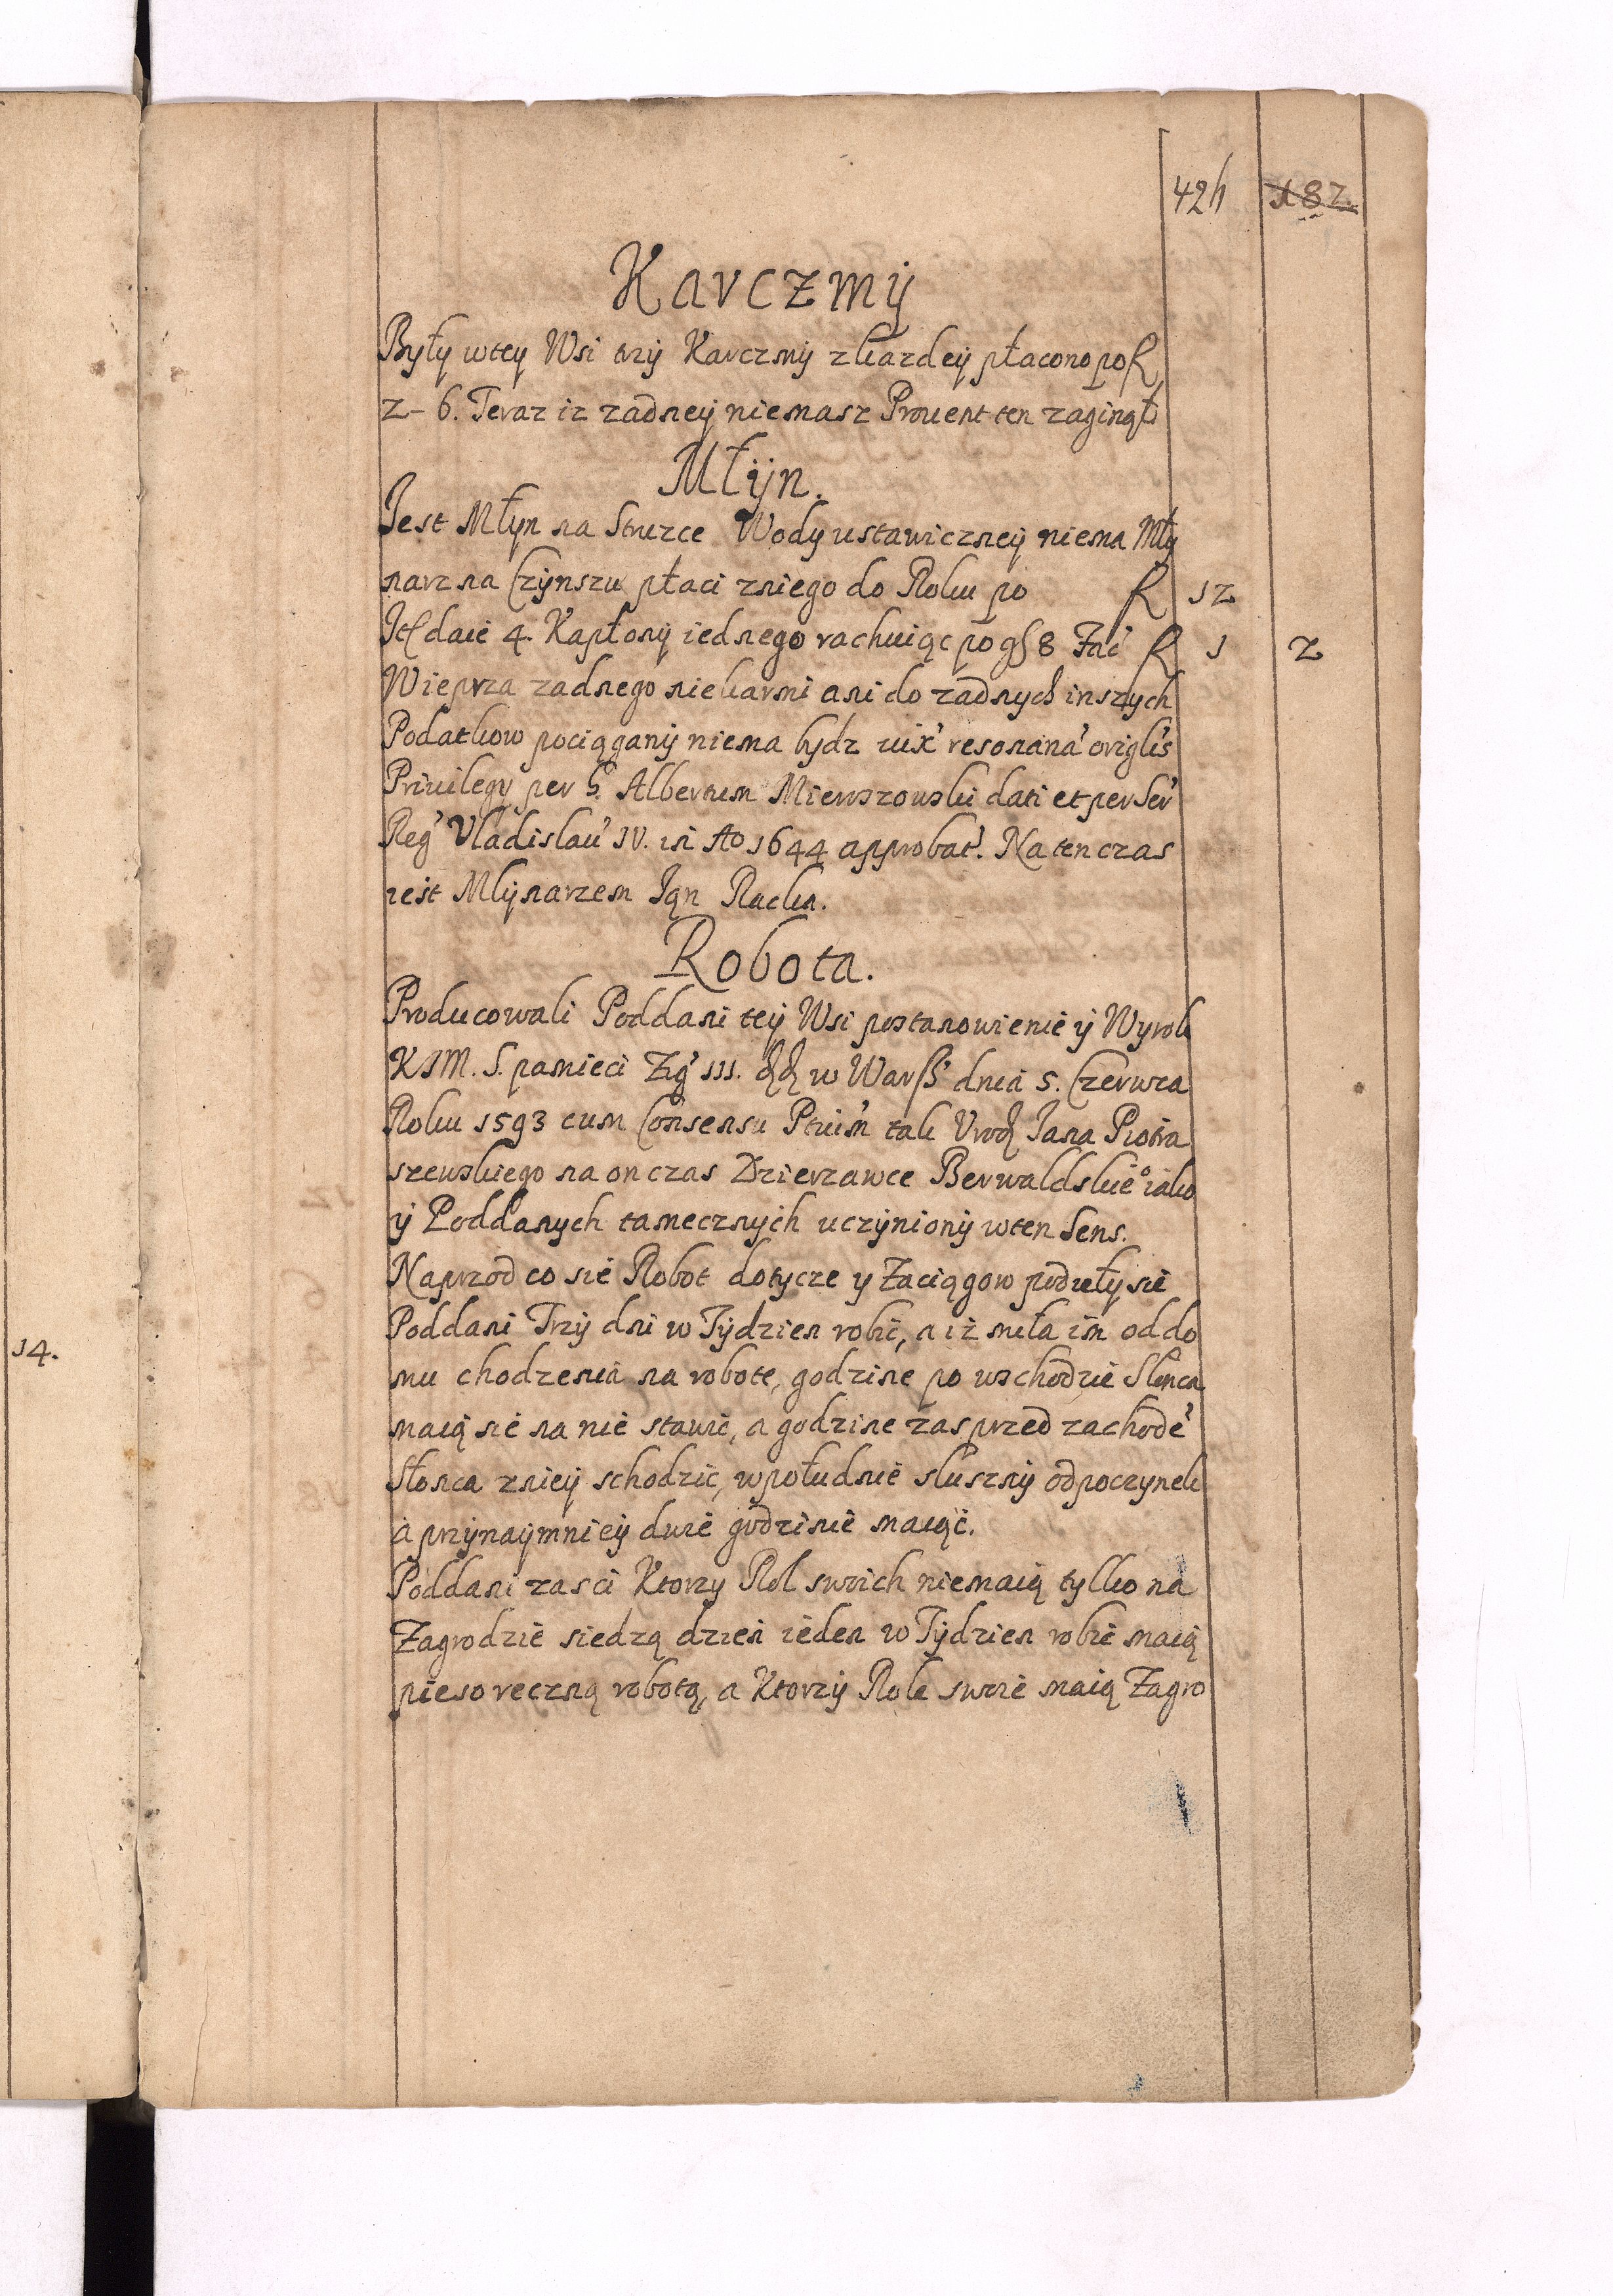 424 182.
Karczmÿ
Były wtey Wsi trzÿ Karczmÿ zkazdeÿ płacono po f
2 - 6. Teraz iz zadneÿ niemasz Prouent ten zaginął
Młÿn.
Jest Młyn na Struzce Wody ustawiczneÿ niema Mły
narz na Czÿnszu płaci zniego do Roku po f 12
It daie 4. Kapłonÿ iednego rachuiąc po gs 8 f 1 2
Wieprza zadnego niekarmi ani do zadnych inszych
Podatkow pociąganÿ niema bydz origlis
Priuilegy per G. Albertum Mierszowski dati et per Ser
Reg Vladislau IV. in Ao 1644 approbat. Na ten czas
iest Mlÿnarzem Jąn Racka.
Robota.
Producowali Poddani teÿ Wsi postanowienie ÿ Wyrok
KJM. S. pamieci Zig III. w Warss dnia 5. Czerwca
Roku 1593 cum Consensu tak Urod Jana Piotra
szewskiego na on czas Dzierzawce Berwaldskieo iako
ÿ Poddanych tamecznÿch uczÿnionÿ wten Sens.
Naprzod co sie Robot dotycze y Zaciągow podięły sie
Poddani Trzÿ dni w Tÿdzien robic, a iż miła im od do
mu chodzenia na robote, godzine po wschodzie Slonca
maią sie na nie stawic, a godzine zas przed zachode
Słonca znieÿ schodzic, wpołudnie słusznÿ odpoczynek
a przÿnaÿmnieÿ dwie godzinie maiąc.
Poddani zas ci Ktorzy Rol swoich niemaią tylko na
Zagrodzie siedzą dzien ieden w Tÿdzien robic maią
pieso reczną robotą, a Ktorzÿ Role swoie maią Zagro
14.